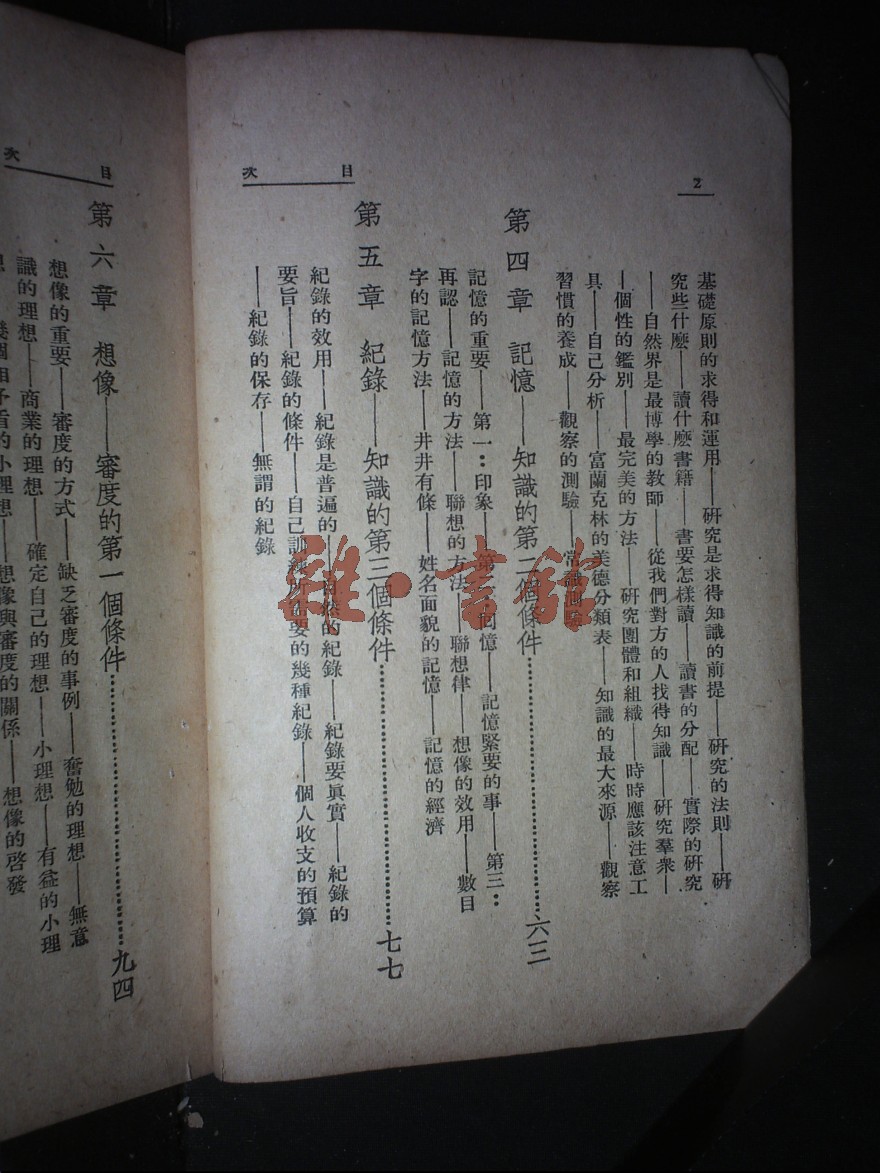 2
目次
基礎原則的求得和運用——研究是求得知識的前提——研究的法則——研
究些什麼——讀什麼書籍——書要怎樣讀——讀書的分配——實際的研究
——自然界是最博學的教師——從我們對方的人找得知識——研究羣衆—
—個性的鑑別——最完美的方法——研究團體和組織——時時應該注意工
具——自己分析——富蘭克林的美德分類表——知識的最大來源——觀察
習慣的養成——觀察的測驗——常識
第四章 記憶——知識的第二個條件……六三
記憶的重要——第一：印象——第二：回憶——記憶緊要的事——第三：
再認——記憶的方法——聯想的方法——聯想律——想像的效用——數目
字的記憶方法——井井有條——姓名面貌的記憶——記憶的經濟
第五章 紀錄——知識的第三個條件……七七
紀錄的效用——紀錄是普遍的——自然的紀錄——紀錄要眞實——紀錄的
要旨——紀錄的條件——自己訓練所需要的幾種紀錄——個人收支的預算
——紀錄的保存——無謂的紀錄
目次
第六章 想像——審度的第一個條件……九四
想像的重要——審度的方式——缺乏審度的事例——奮勉的理想——無意
識的理想——商業的理想——確定自己的理想——小理想——有益的小理
幾個相矛盾的小理想——想像與審度的關係——想像的啓發
雜·書館